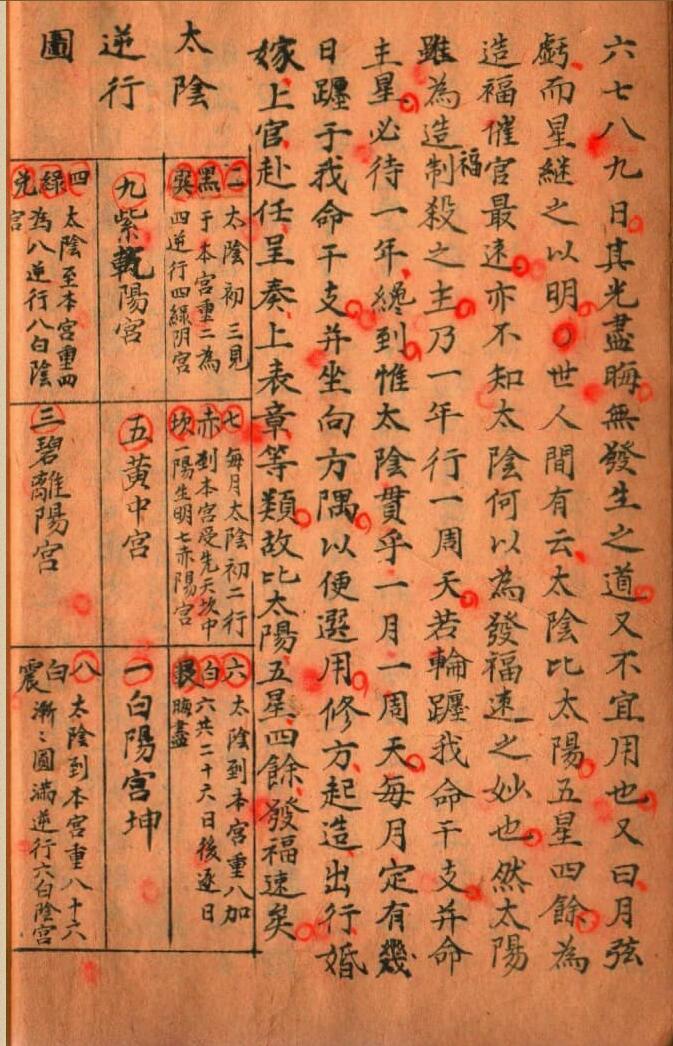 六七八九日其光盡晦無發生之道又不宜用也又曰月弦
虧而星繼之以明〇世人間有云太陰比太陽五星四餘為
造福催官最速亦不知太陰何以為發福速之妙也然太陽
雖為造福制殺之主乃一年行一周天若輪躔我命干支并命
主星必待一年纔到惟太陰貫乎一月一周天每月定有幾
日躔于我命干支并坐向方隅以便選用修方起造出行婚
嫁上官赴任呈奏上表章等類故比太陽五星四餘發福速矣
太陰
逆行
圖
二黑巽
太陰初三見
于本宮重二為
四逆行四綠陰宮
九紫乾陽宮
四綠兌
太陰至本宮重四
為八逆行八白陰
宮
七赤坎
每月太陰初二行
到本宮受先天坎中
一陽生明七赤陽宮
五黃中宮
三碧離陽宮
六白艮
太陰到本宮重八加
六共二十六日後逐日
晦盡
一白陽宮坤
八白震
太陰到本宮重八十六
漸〻圓滿逆行六白陰宮